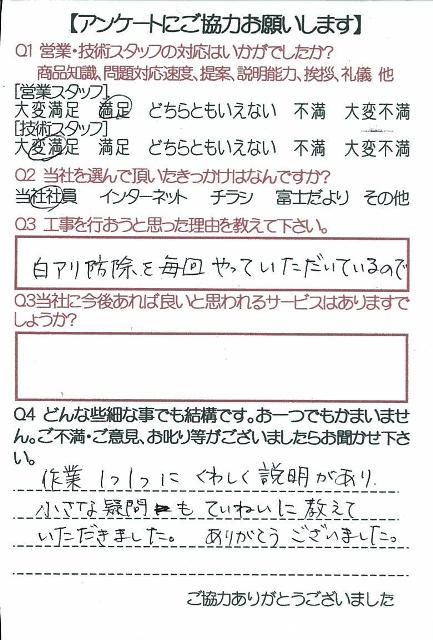 【アンケートにご協力お願いします】
Q.1 営業・技術スタッフの対応はいかがでしたか?
商品知識、問題対応速度、提案、説明能力、挨拶、礼儀 他
[営業スタッフ]
大変満足 満足 どちらともいえない 不満 大変不満
[技術スタッフ]
大変満足 満足 どちらともいえない 不満 大変不満
Q.2 当社を選んで頂いたきっかけはなんですか?
当社社員 インターネット チラシ 富士だより その他
Q.3 工事を行おうと思った理由を教えて下さい。
白アリ防除を毎回やっていいただいているので
Q.3当社に今後あれば良いと思われるサービスはありますで
しょうか?
Q.4 どんな些細な事でも結構です。お一つでもかまいませ
ん。ご不満・ご意見、お叱り等がございましたらお聞かせ下さ
い。
作業1つ1つにくわしく説明があり
小さな疑問にもていねいに教えて
いただきました。ありがとうございました。
ご協力ありがとうございました